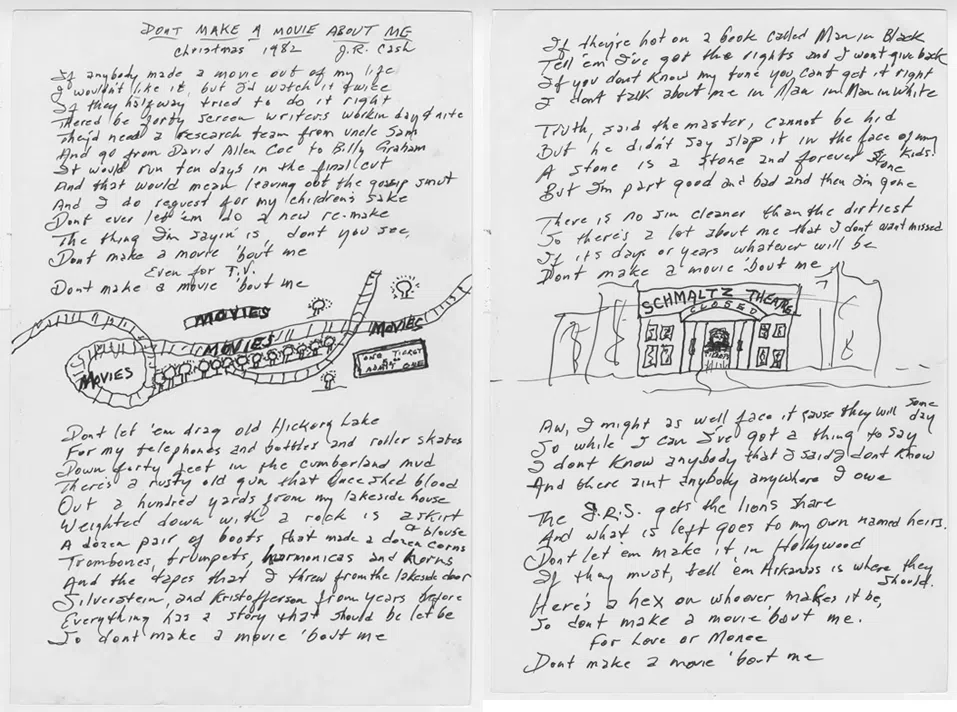 DONT MAKE A MOVIE ABOUT ME
Christmas 1982 J.R. Cash
If anybody made a movie out of my life
I wouldn't like it, but I'd watch it twice
If they halfway tried to do it right
There'd be forty screen writers workin day & nite
They'd need a research team from uncle Sam
And go from David Allen Coe to Billy Graham
It would run ten days in the final cut
And that would mean leaving out the gossip smut
And I do request for my children's sake
Dont ever let 'em do a new re-make
The thing I'm sayin' is dont you see,
Dont make a movie 'bout me
Even for T.V.
Dont make a movie 'bout me
MOVIES
MOVIES
MOVIES
MOVIES
ONE TICKET
ADMIT ONE
Dont let 'em drag old Hickory Lake
For my telephones and bottles and roller skates
Down forty feet in the cumberland mud
There's a rusty old gun that once shed blood
Out a hundred yards from my lakeside house
Weighted down with a rock is a skirt
a blouse
A dozen pair of boots that made a dozen corns
Trombones, trumpets, harmonicas and horns
And the tapes that I threw from the lakeside door
Silverstein, and Kristofferson from years before
Everything has a story that should be let be
So dont make a movie 'bout me
If they're hot on a book called Man in Black
Tell 'em I've got the rights and I wont give back
If you dont Know my tune you cant get it right
I dont talk about me in Man in Man in White
Truth, said the master, cannot be hid
But he didn't say slap it in the face of my
Kids.
A stone is a stone and forever stone
But I'm part good and bad and then I'm gone
There is no sin cleaner than the dirtiest
So there's a lot about me that I dont want missed
If it's days or years whatever will be
Dont make a movie 'bout me
SCHMALTZ THEATRE
CLOSED
Aw, I might as well face it cause they will some day
So while I can I've got a thing to say
I dont Know anybody that I said I dont Know
And there aint anybody anywhere I owe
The I.R.S. gets the lions share
And what is left goes to my own named heirs.
Dont let em make it in Hollywood
If they must, tell 'em Arkansas is where they
should.
Here's a hex on whoever makes it be,
So dont make a movie 'bout me.
For Love or Monee
Dont make a movie 'bout me